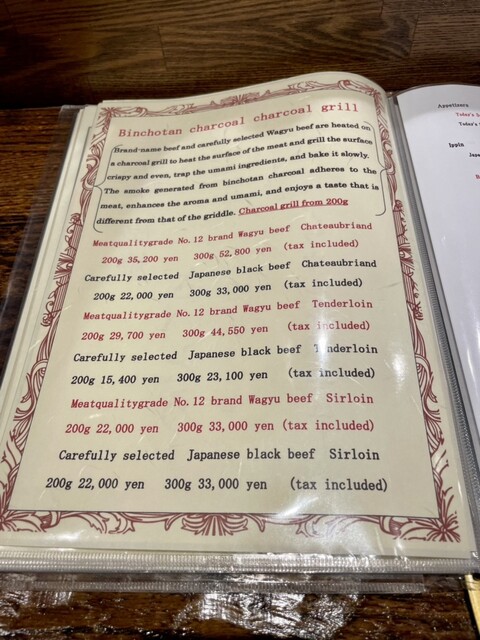 Binchotan charcoal charcoal grill
Brand-name beef and carefully selected Wagyu beef are heated on
a charcoal grill to heat the surface of the meat and grill the surface
crispy and even, trap the umami ingredients, and bake it slowly.
The smoke generated from binchotan charcoal adheres to the
meat, enhances the aroma and umami, and enjoys a taste that is
different from that of the griddle. Charcoal grill from 200g
Meatqualitygrade No. 12 brand Wagyu beef Chateaubriand
200g 35,200 yen 300g 52,800 yen (tax included)
Carefully selected Japanese black beef Chateaubriand
200g 22,000 yen 300g 33,000 yen (tax included)
Meatqualitygrade No. 12 brand Wagyu beef Tenderloin
200g 29,700 yen 300g 44,550 yen (tax included)
Carefully selected Japanese black beef Tenderloin
200g 15,400 yen 300g 23,100 yen (tax included)
Meatqualitygrade No. 12 brand Wagyu beef Sirloin
200g 22,000 yen 300g 33,000 yen (tax included)
Carefully selected Japanese black beef Sirloin
200g 22,000 yen 300g 33,000 yen (tax included)
Appetizers
Today's
Today's
Ippin